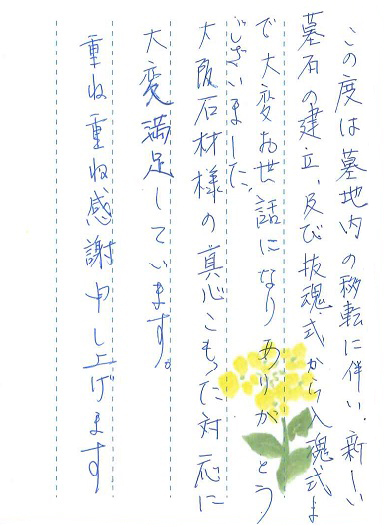 この度は墓地内の移転に伴い、新しい
墓石の建立、及び抜魂式から入魂式ま
で大変お世話になりありがとう
ございました。
大阪石材様の真心こもった対応に
大変満足しています。
重ね重ね感謝申し上げます